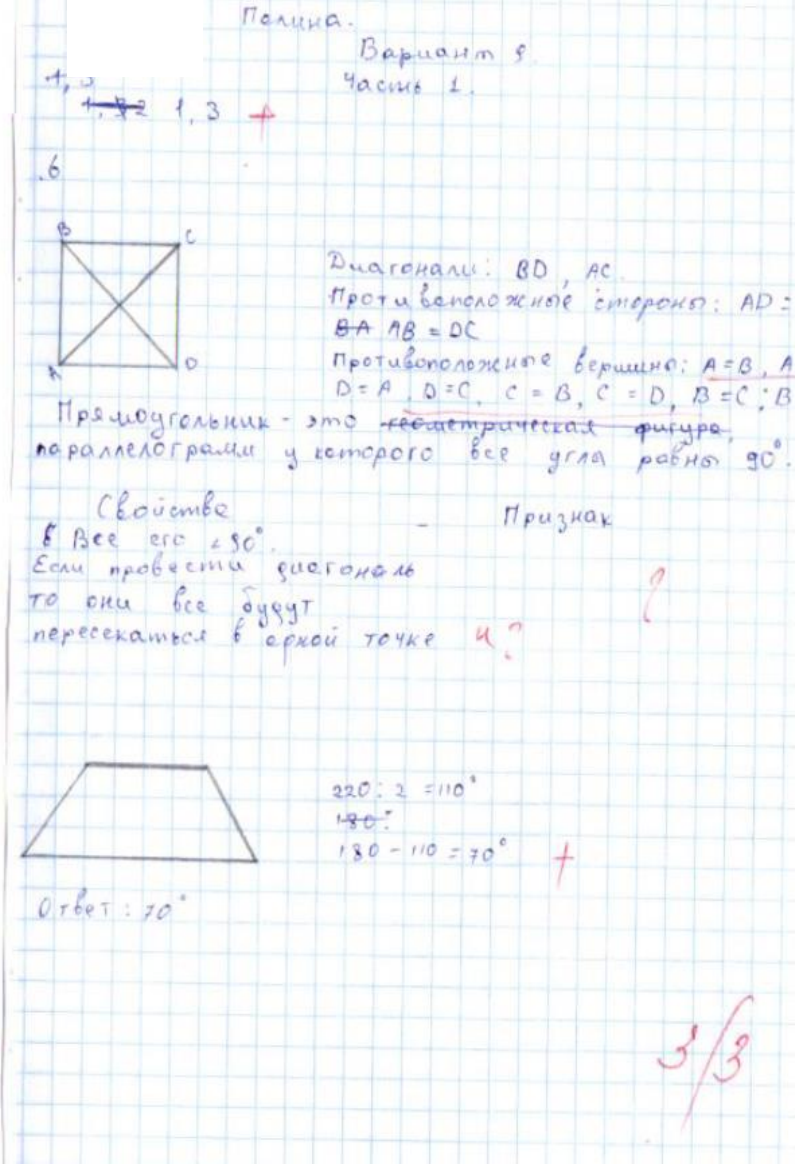 Полина.
Вариант 9
Часть 1.
1, 3
1, 3 +
6
B C
A D
Диагонали: BD, AC.
Противоположные стороны: AD =
BA AB = DC
Противоположные вершины: A = B, A
D = A, D = C, C = B, C = D, B = C; B
Прямоугольник - это геометрическая фигура,
параллелограмм у которого все угла равны 90°.
Свойства - Признак
Все его ∠90°.
Если провести диагональ
то они все будут
пересекаться в одной точке и?
?
220 : 2 = 110°
180°
180 - 110 = 70° +
Ответ: 70°
3/3